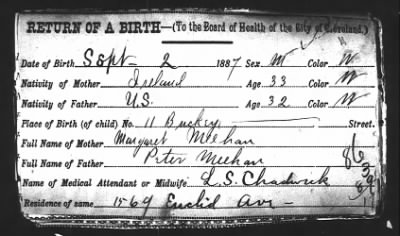 RETURN OF A BIRTH—(To the Board of Health of the City of Cleveland.)
Date of Birth Sept- 2 1887 Sex M Color W
Nativity of Mother Ireland Age 33 Color W
Nativity of Father U.S. Age 32 Color W
Place of Birth (of child) No. 11 Buckey Street.
Full Name of Mother Margaret Meehan
Full Name of Father Peter Meehan
Name of Medical Attendant or Midwife L.S. Chadwick
Residence of same 1569 Euclid Ave -